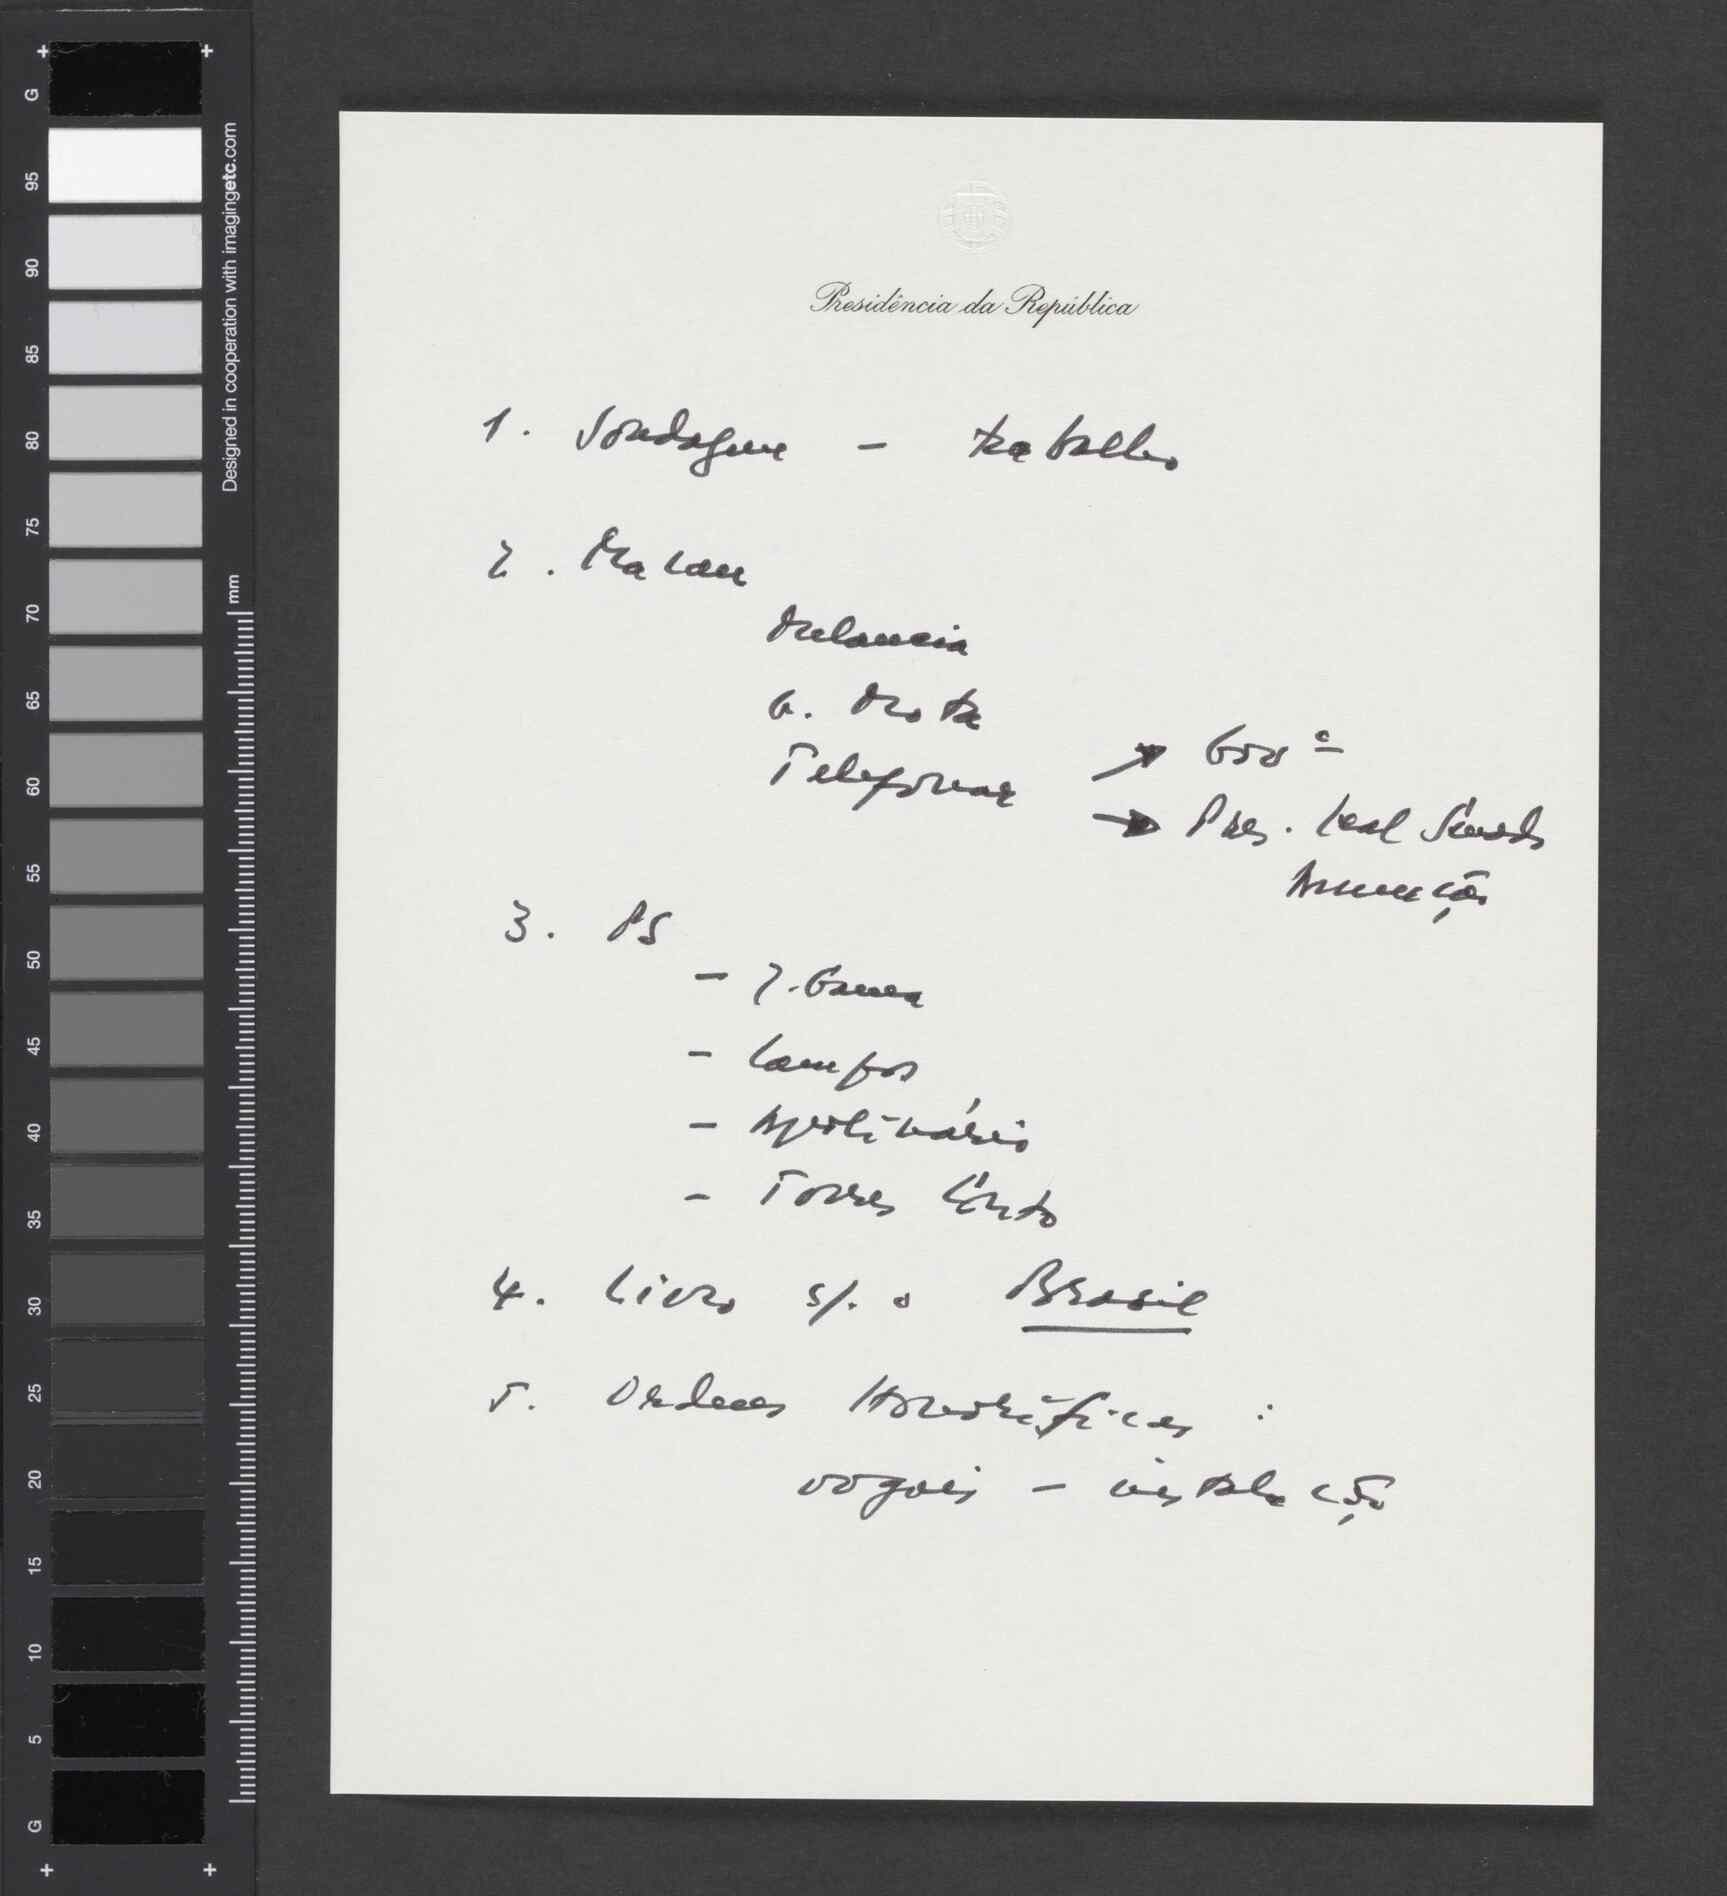 Presidência da República
1. Sondagem – trabalho
2. Macau
Melancia
G. Mota
Telefonar → Govº
→ Pres. Leal Senado
Assunção
3. PS
– J. Gama
– Campos
– Apolinário
– Torres Couto
4. Livro s/. o Brasil
5. Ordens Honoríficas :
vogais – instalação
G
95
90
85
80
75
70
65
60
55
50
45
40
35
30
25
20
15
10
5
G
Designed in cooperation with imagingetc.com
mm